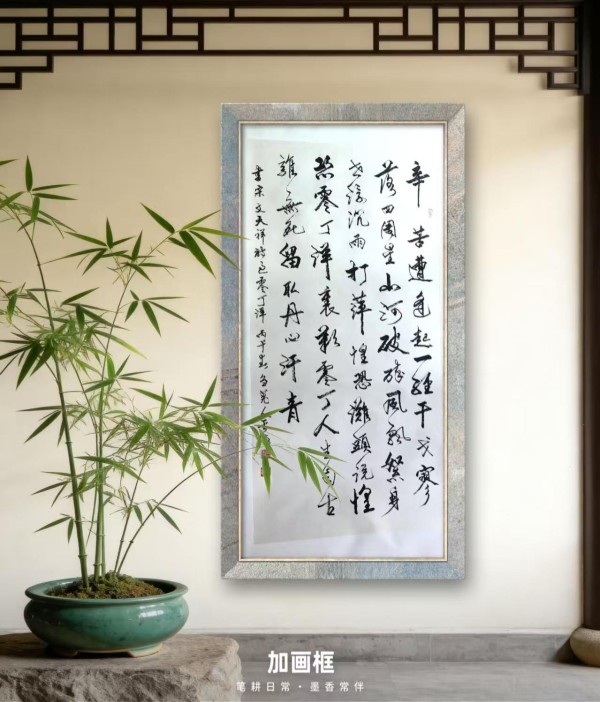 辛苦遭逢起一經干戈寥
落四周星山河破碎風飄絮身
世浮沉雨打萍惶恐灘頭說惶
恐零丁洋裏歎零丁人生自古
誰無死留取丹心汗青
書宋文天祥詩過零丁洋 丙午春
加画框
笔耕日常·墨香常伴